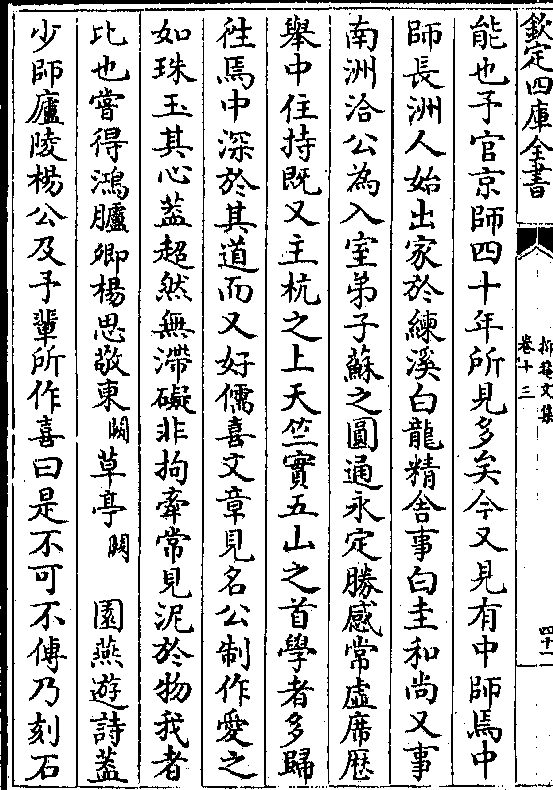 欽定四庫全書
抑菴文集
卷十三
四十二
能也予官京師四十年所見多矣今又見有中師焉中
師長洲人始出家於練溪白龍精舍事白圭和尚又事
南洲洽公為入室弟子蘇之圓通永定勝感常虛席歴
舉中住持既又主杭之上天竺實五山之首學者多歸
徃焉中深於其道而又好儒喜文章見名公制作愛之
如珠玉其心葢超然無滯礙非拘牽常見泥於物我者
比也嘗得鴻臚卿楊思敬東闕草亭闕 園燕遊詩葢
少師廬陵楊公及予輩所作喜曰是不可不傳乃刻石